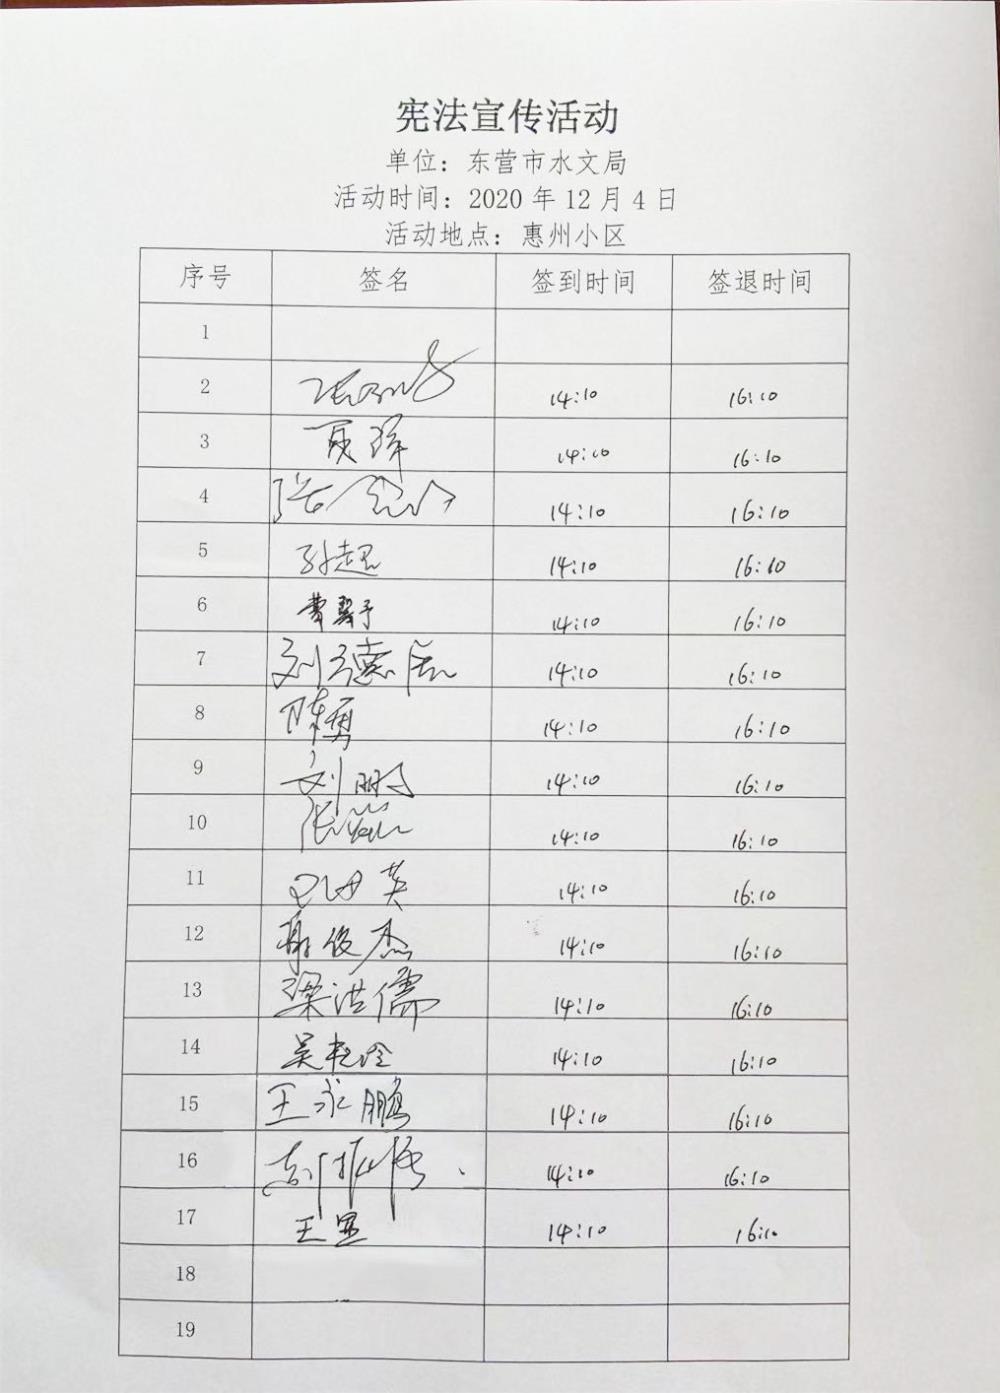 宪法宣传活动
单位：东营市水文局
活动时间：2020年12月4日
活动地点：惠州小区
序号 签名 签到时间 签退时间
1
2 14:10 16:10
3 夏辉 14:10 16:10
4 14:10 16:10
5 孙超 14:10 16:10
6 14:10 16:10
7 刘德 14:10 16:10
8 陈勇 14:10 16:10
9 刘鹏 14:10 16:10
10 张 14:10 16:10
11 英 14:10 16:10
12 俊杰 14:10 16:10
13 梁洪儒 14:10 16:10
14 吴艳玲 14:10 16:10
15 王永鹏 14:10 16:10
16 14:10 16:10
17 王显 14:10 16:10
18
19